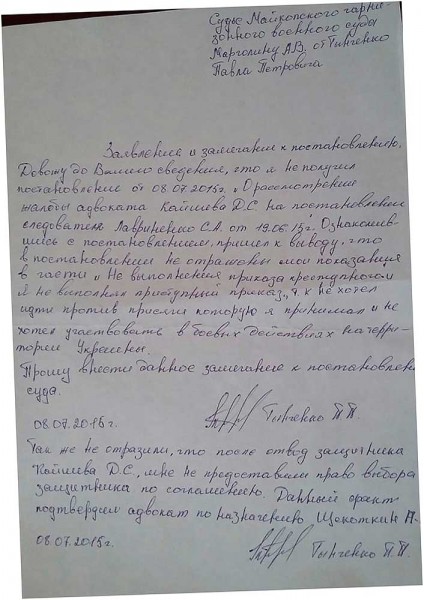 Судье Майкопского гарни-
зонного военного суда
Марголину А.В. от Тынченко
Павла Петровича
Заявление и замечание к постановлению.
Довожу до Вашего сведения, что я не получил
постановление от 08.07.2015г. „О рассмотрении
жалобы адвоката Кайшева Д.С. на постановление
следователя Лавриненко С.А. от 19.06.15г." Ознакомив-
шись с постановлением, пришел к выводу, что
в постановлении не отражены мои показания
в части „Не выполнения приказа преступного"
Я не выполнял приступный приказ, т.к. не хотел
идти против присяги которую я принимал и не
хотел участвовать в боевых действиях на терри-
тории Украины.
Прошу внести данное замечание к постановлению
суда.
08.07.2015г. Тынченко П.П.
Так же не отразили, что после отвод защитника
Кайшева Д.С., мне не предоставили право выбора
защитника по соглашению. Данный факт
подтвердил адвокат по назначению Щекоткин А.
08.07.2015г. Тынченко П.П.